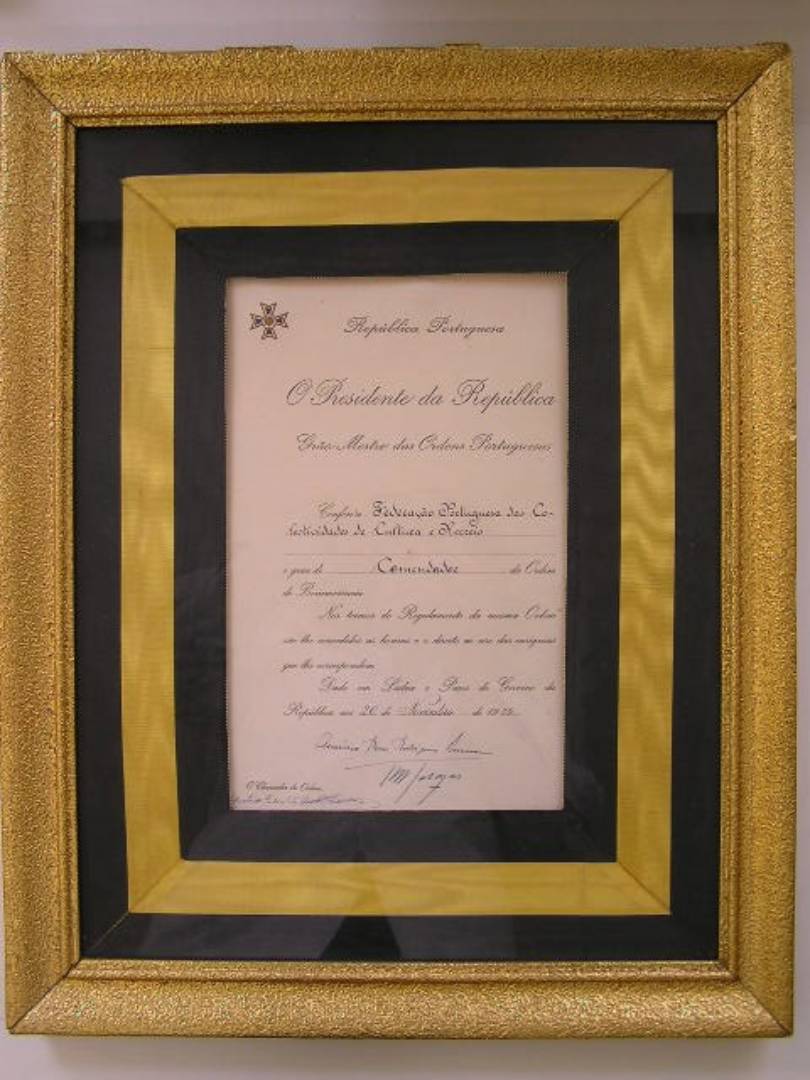 República Portuguesa
O Presidente da República
Grão-Mestre das Ordens Portuguesas
Confere a Federação Portuguesa das Co-
lectividades de Cultura e Recreio
o grau de Comendador da Ordem
de Benemerencia
Nos termos do Regulamento da mesma Ordem
são-lhe concedidas as honras e o direito ao uso das insignias
que lhe correspondem
Dado em Lisboa e Paços do Governo da
República aos 20 de de 19
O Chanceler da Ordem,